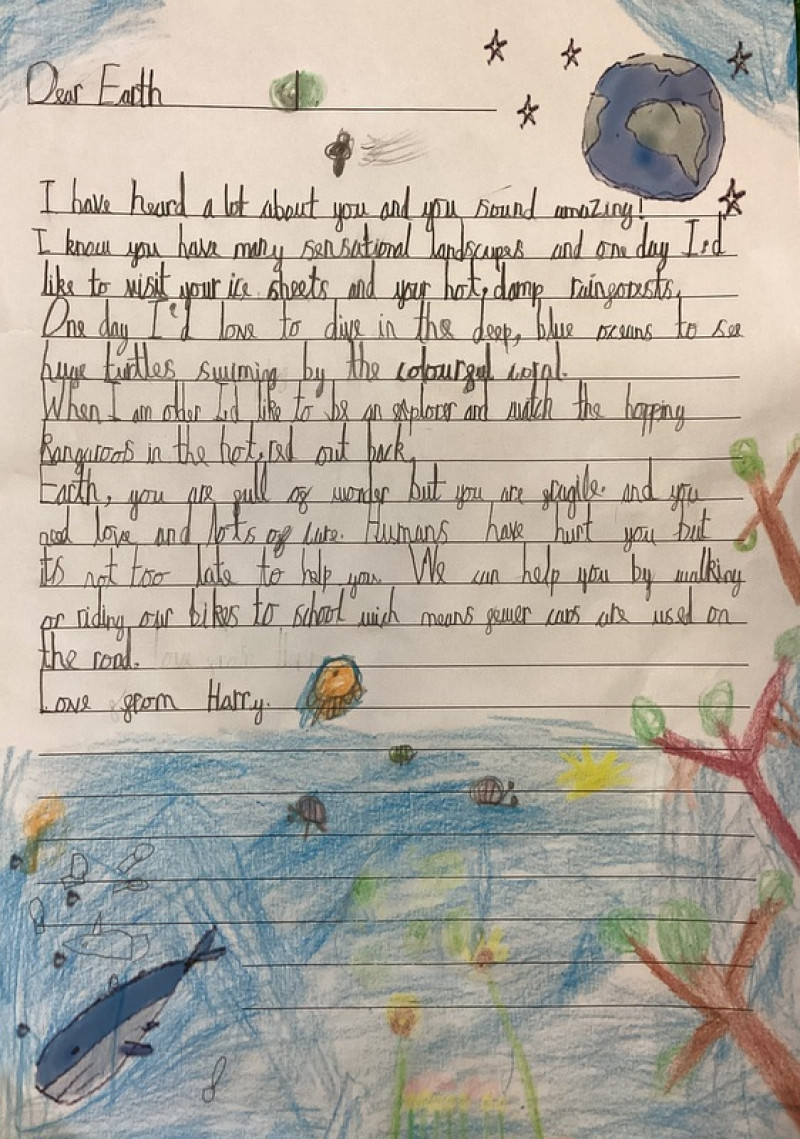 Dear Earth
I have heard a lot about you and you sound amazing!
I know you have many sensational landscapes and one day I'd
like to visit your ice sheets and your hot, damp raingorests.
One day I'd love to dive in the deep, blue oceans to see
huge turtles swiming by the colourgul coral.
When I am older I'd like to be an explorer and watch the hopping
kangaroos in the hot, red out back.
Earth, you are gull og wonder but you are gragile and you
need love and lots og care. Humans have hurt you but
it's not too late to help you. We can help you by walking
or riding our bikes to school wich means gewer cars are used on
the road.
Love grom Harry.